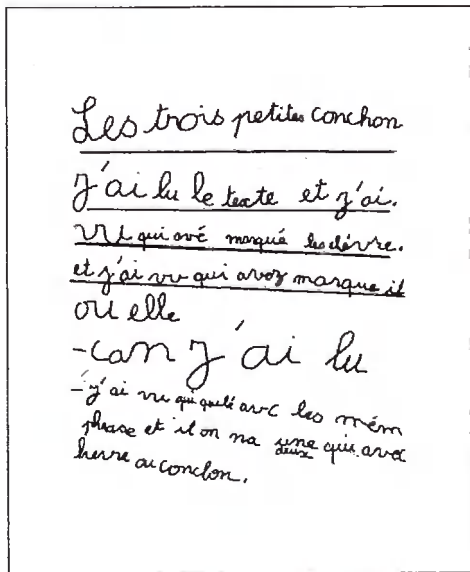 Les trois petites conchon
J'ai lu le texte et j'ai.
vu qui avé marqué les élèvre.
et j'ai vu qui avoz marque il
ou elle
-can j'ai lu
-j'ai vu qui avec les mém
phrase et il on na une qui avec
deux
au conclon.